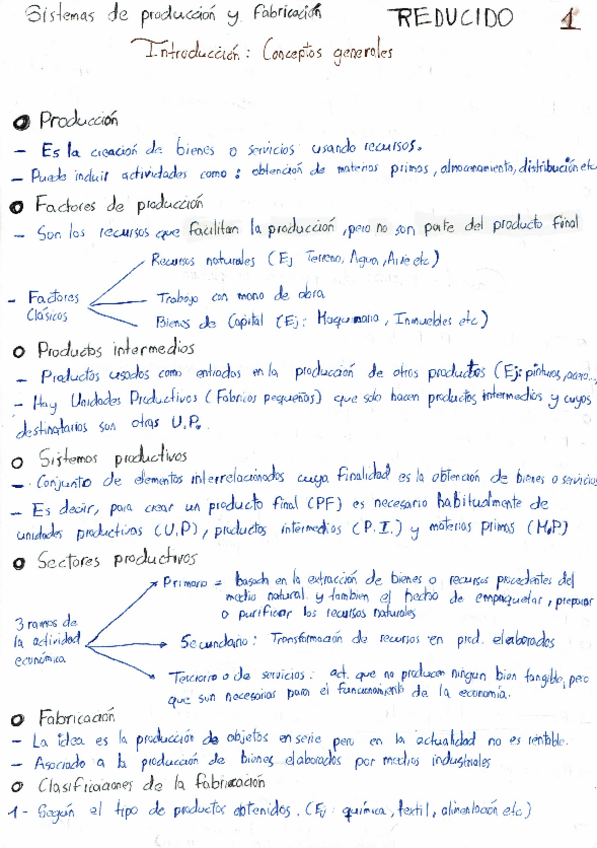 Sistemas de producción y fabricación REDUCIDO 1
Introducción: Conceptos generales
Producción
- Es la creación de bienes o servicios usando recursos.
- Puede incluir actividades como: obtención de materias primas, almacenamiento, distribución etc
Factores de producción
- Son los recursos que facilitan la producción, pero no son parte del producto final
- Factores Clásicos
Recursos naturales (Ej Terreno, Agua, Aire etc)
Trabajo con mano de obra
Bienes de Capital (Ej: Maquinaria, Inmuebles etc)
Productos intermedios
- Productos usados como entradas en la producción de otros productos (Ej: pinturas, acero...
- Hay Unidades Productivas (Fabricas pequeñas) que solo hacen productos intermedios y cuyos
destinatarios son otras U.P.
Sistemas productivos
- Conjunto de elementos interrelacionados cuya finalidad es la obtención de bienes o servicios
- Es decir, para crear un producto final (PF) es necesario habitualmente de
unidades productivas (U.P), productos intermedios (P.I.) y materias primas (M.P)
Sectores productivos
3 ramas de
la actividad
económica
Primario = basada en la extracción de bienes o recursos procedentes del
medio natural y tambien el hecho de empaquetar, preparar
o purificar los recursos naturales
Secundario: Transformación de recursos en prod. elaborados
Terciario o de servicios: act. que no producen ningun bien tangible, pero
que son necesarias para el funcionamiento de la economía.
Fabricación
- La idea es la producción de objetos en serie pero en la actualidad no es rentable.
- Asociado a la producción de bienes elaborados por medios industriales
Clasificaciones de la fabricación
1- Según el tipo de productos obtenidos. (Ej: química, textil, alimentación etc)